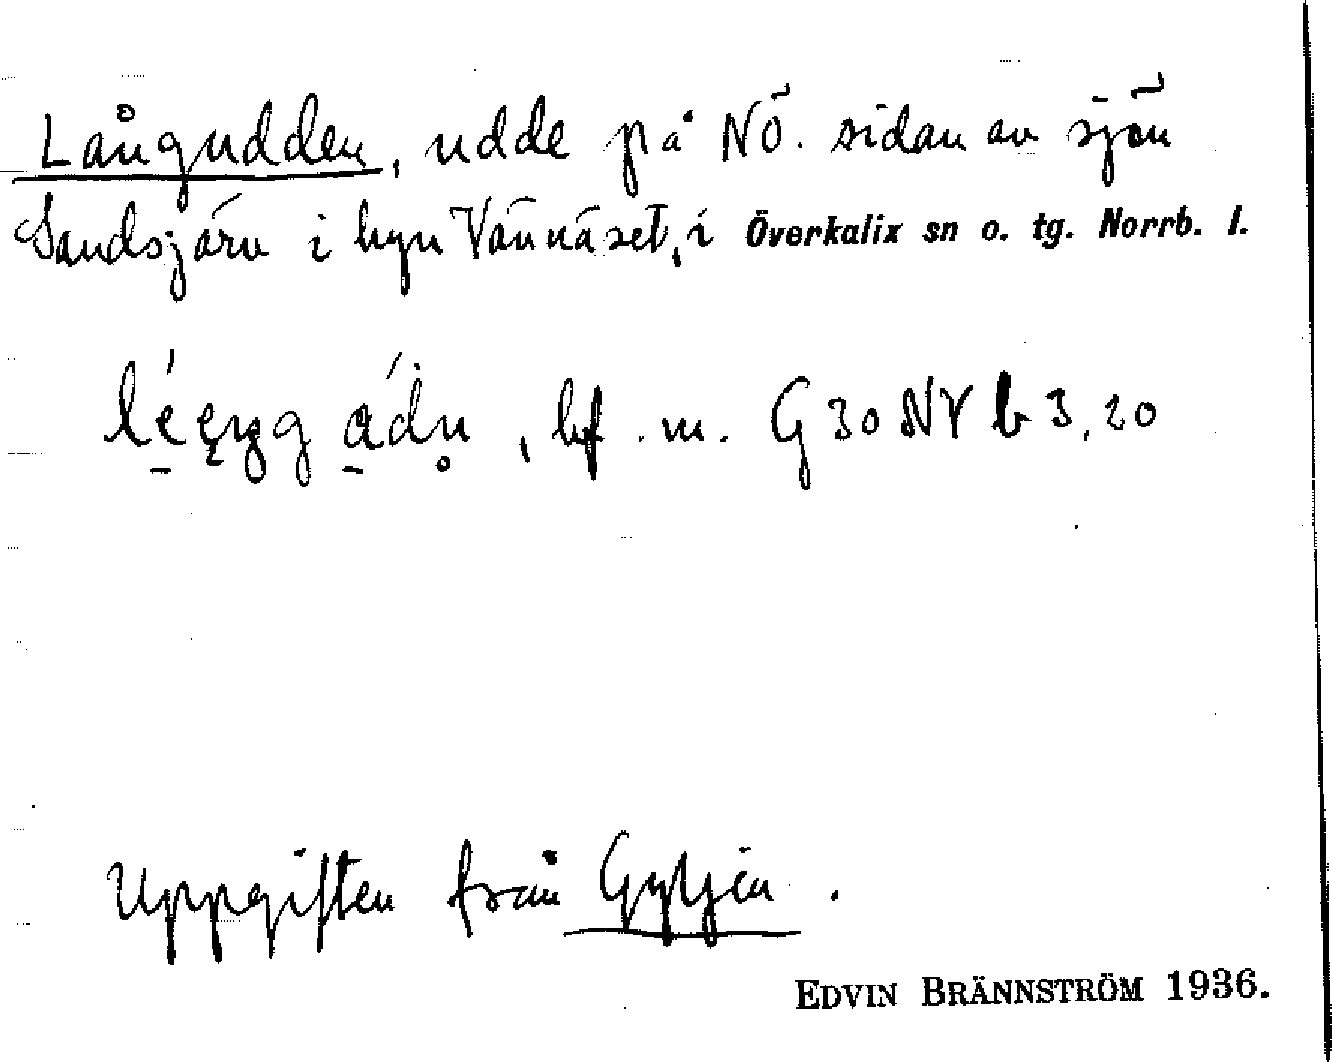 Långudden, udde på NÖ. sidan av sjön
Sandsjärv i byn Vännäset, i Överkalix sn o. tg. Norrb. l.
bf. m. G 30 NV b 3, 20
Uppgiften från Gyljen.
EDVIN BRÄNNSTRÖM 1936.